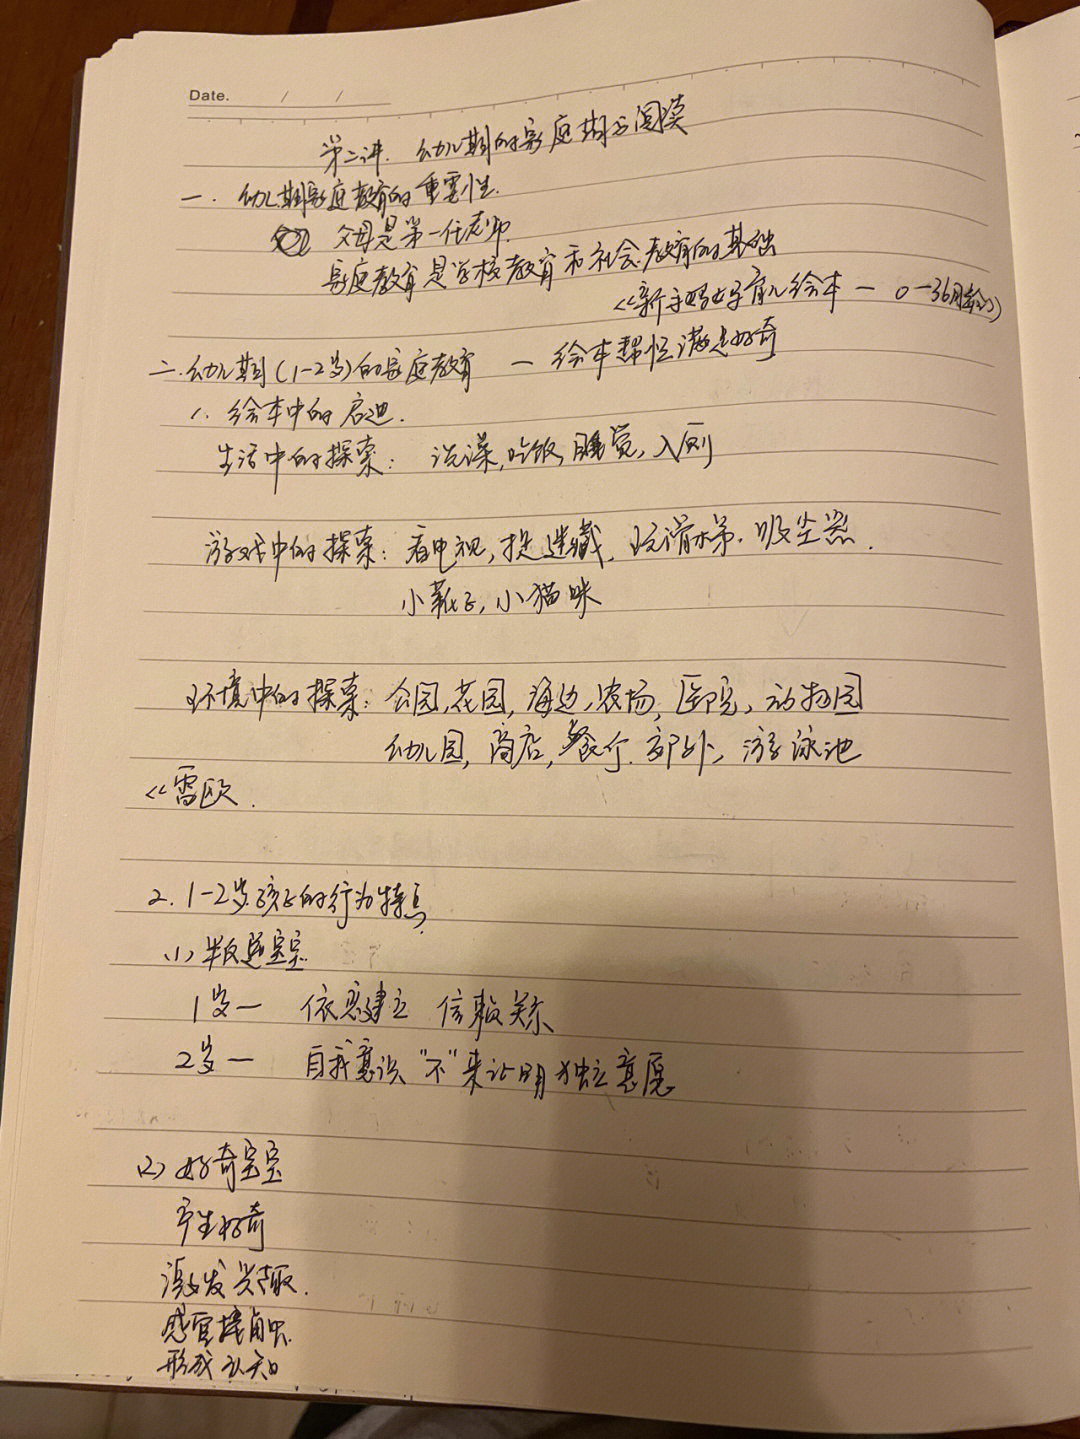 Date. / /
第二讲. 幼儿期的家庭指导阅读
一. 幼儿期家庭教育的重要性.
父母是第一任老师.
家庭教育是学校教育和社会教育的基础
《新手妈妈育儿绘本 — 0-36月龄》
二. 幼儿期(1-2岁)的家庭教育 — 绘本帮忙满足好奇
1. 绘本中的启迪.
生活中的探索: 洗澡, 吃饭, 睡觉, 入厕
游戏中的探索: 看电视, 捉迷藏, 玩滑梯. 吸尘器.
小靴子, 小猫咪
环境中的探索: 公园, 花园, 海边, 农场, 医院, 动物园
幼儿园, 商店, 餐厅. 郊外, 游泳池
《雷欧.
2. 1-2岁孩子的行为特点
(1) 叛逆宝宝
1岁— 依恋建立 信赖关系
2岁— 自我意识 "不" 来证明独立意愿
(2) 好奇宝宝
产生好奇
激发兴趣.
感官接触.
形成认知